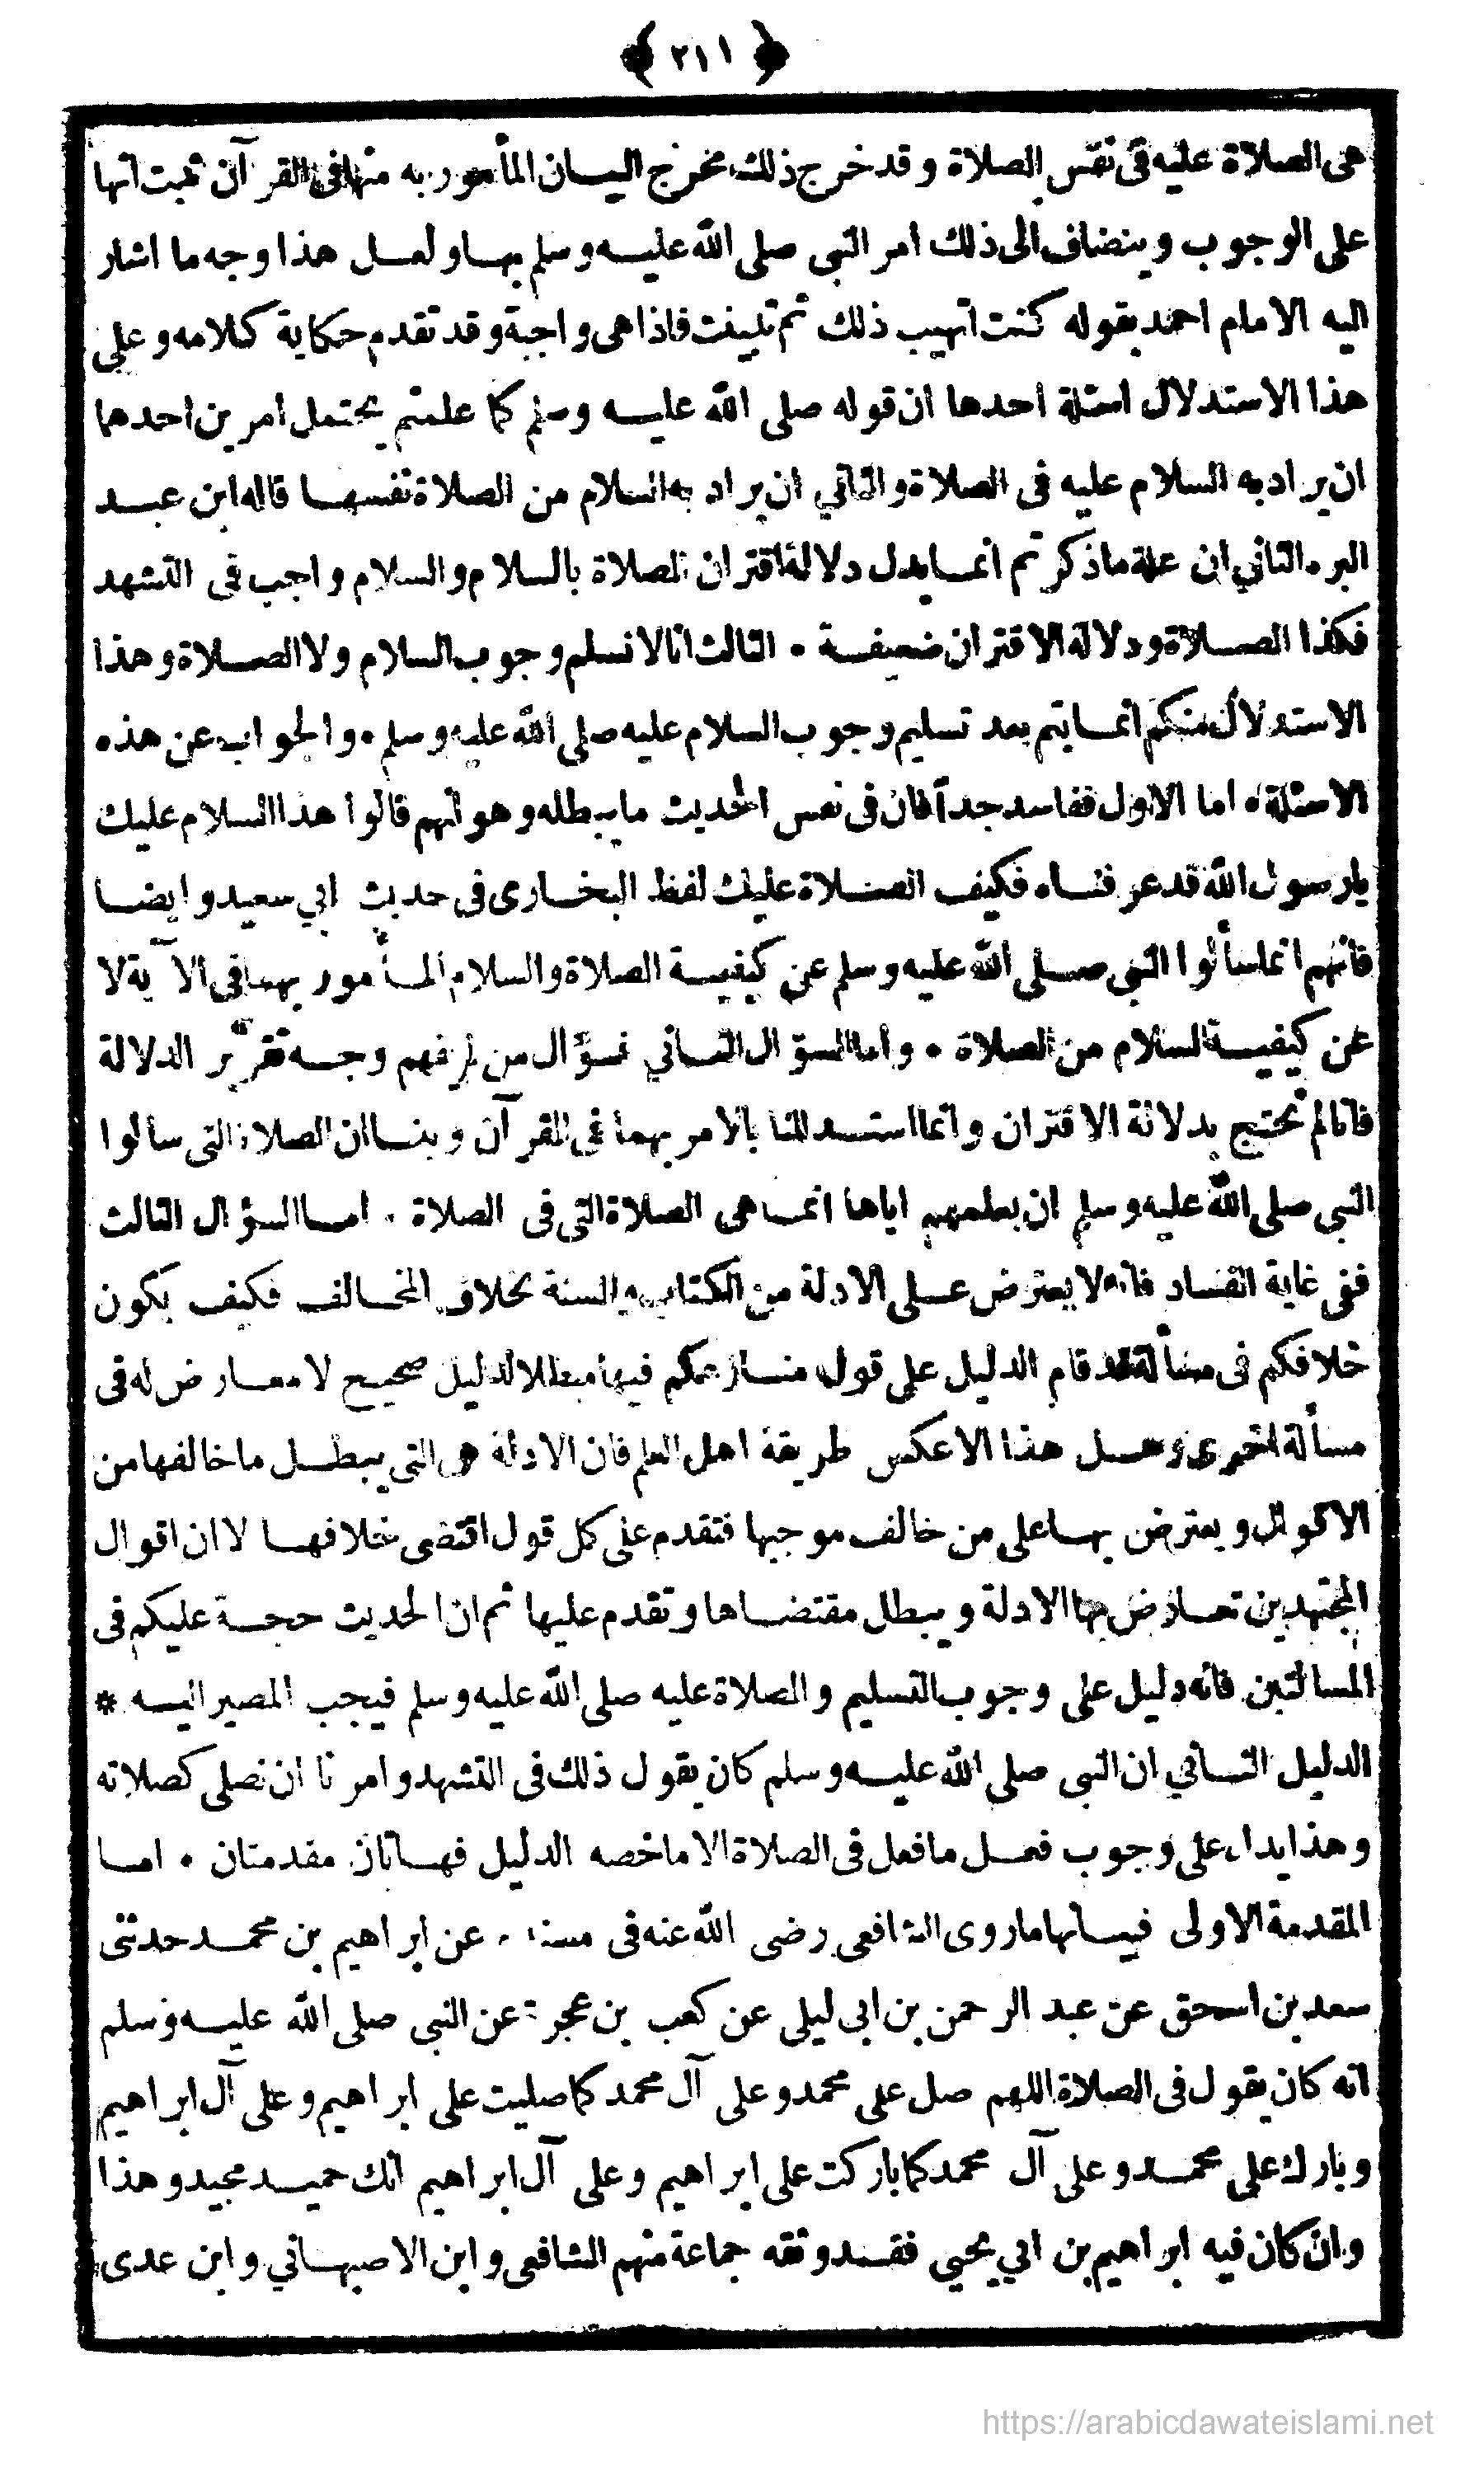 ﴿ ٢١١ ﴾
هى الصلاة عليه فى نفس الصلاة وقد خرج ذلك مخرج البيان المأمور به منها فى القرآن ثبت انها
على الوجوب وينضاف الى ذلك امر النبى صلى الله عليه وسلم بها ولعل هذا وجه ما اشار
اليه الامام احمد بقوله كنت اتهيب ذلك ثم تبينت فاذا هى واجبة وقد تقدم حكاية كلامه وعلى
هذا الاستدلال اسئلة احدها ان قوله صلى الله عليه وسلم كما علمتم يحتمل امرين احدهما
ان يراد به السلام عليه فى الصلاة والثاني ان يراد به السلام من الصلاة نفسها قاله ابن عبد
البر. الثاني ان علة ما ذكرتم انما يدل دلالة اقتران الصلاة بالسلام والسلام واجب فى التشهد
فكذا الصلاة ودلالة الاقتران ضعيفة . الثالث انا لا نسلم وجوب السلام ولا الصلاة وهذا
الاستدلال منكم انما يتم بعد تسليم وجوب السلام عليه صلى الله عليه وسلم . والجواب عن هذه
الاسئلة . اما الاول ففاسد جداً فان فى نفس الحديث ما يبطله وهو انهم قالوا هذا السلام عليك
يا رسول الله قد عرفناه فكيف الصلاة عليك لفظ البخارى فى حديث ابي سعيد وايضا
فانهم انما سألوا النبى صلى الله عليه وسلم عن كيفية الصلاة والسلام المأمور بهما فى الآية لا
عن كيفية السلام من الصلاة . واما السؤال الثاني فسؤال من لم يفهم وجه تقرير الدلالة
فانا لم نحتج بدلالة الاقتران وانما استدللنا بالامر بهما فى القرآن وبينا ان الصلاة التى سالوا
النبى صلى الله عليه وسلم ان يعلمهم اياها انما هى الصلاة التى فى الصلاة . اما السؤال الثالث
ففى غاية الفساد فانه لا يعترض على الادلة من الكتاب والسنة بخلاف المخالف فكيف يكون
خلافكم فى مسألة قد قام الدليل على قول منازعكم فيها مبطلا لدليل صحيح لا معارض له فى
مسألة اخرى وهل هذا الا عكس طريقة اهل العلم فان الادلة هى التى يبطل ما خالفها من
الاكوال ويعترض بها على من خالف موجبها فتقدم على كل قول اقتضى خلافها لا ان اقوال
المجتهدين تعارض بها الادلة ويبطل مقتضاها وتقدم عليها ثم ان الحديث حجة عليكم فى
المسالتين فانه دليل على وجوب التسليم والصلاة عليه صلى الله عليه وسلم فيجب المصير اليه *
الدليل الثاني ان النبى صلى الله عليه وسلم كان يقول ذلك فى التشهد وامرنا ان نصلى كصلاته
وهذا يدل على وجوب فعل ما فعل فى الصلاة الا ما خصه الدليل فهاتان مقدمتان . اما
المقدمة الاولى فبيانها ما روى الشافعى رضى الله عنه فى مسنده عن ابراهيم بن محمد حدثنى
سعد بن اسحق عن عبد الرحمن بن ابى ليلى عن كعب بن عجرة عن النبى صلى الله عليه وسلم
انه كان يقول فى الصلاة اللهم صل على محمد وعلى آل محمد كما صليت على ابراهيم وعلى آل ابراهيم
وبارك على محمد وعلى آل محمد كما باركت على ابراهيم وعلى آل ابراهيم انك حميد مجيد وهذا
وان كان فيه ابراهيم بن ابي يحيى فقد وثقه جماعة منهم الشافعى وابن الاصبهاني وابن عدى
https://arabicdawateislami.net